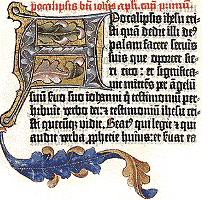 Apocalipsis bti iohis apli. cam primum
APocalipsis ihesu cri
sti quā dedit illi de⁹
palam facere servis
suis que oportet fie-
ri cito: et significa-
vit mittēs per āgelū
suū servo suo iohanni q̄ testimoniū per-
hibuit verbo dei: et testimoniū ihesu cri
sti quecūq; vidit. Beat⁹ qui legit et qui
audit verba prophetie huius: et servat ea